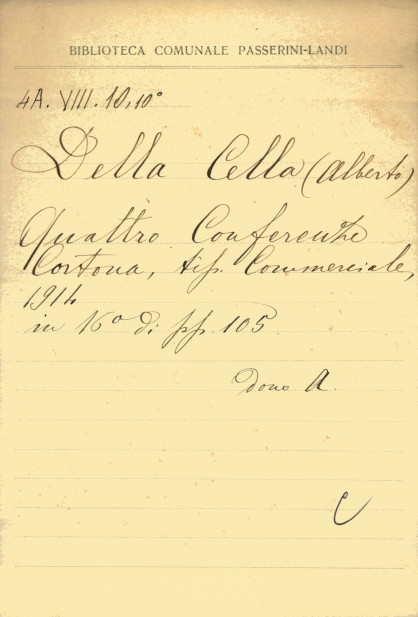 BIBLIOTECA COMUNALE PASSERINI-LANDI
4A. VIII. 10, 10°
Della Cella (Alberto)
Quattro Conferenze
Cortona, tip. Commerciale,
1914
in 16° di pp. 105
dono A.
C